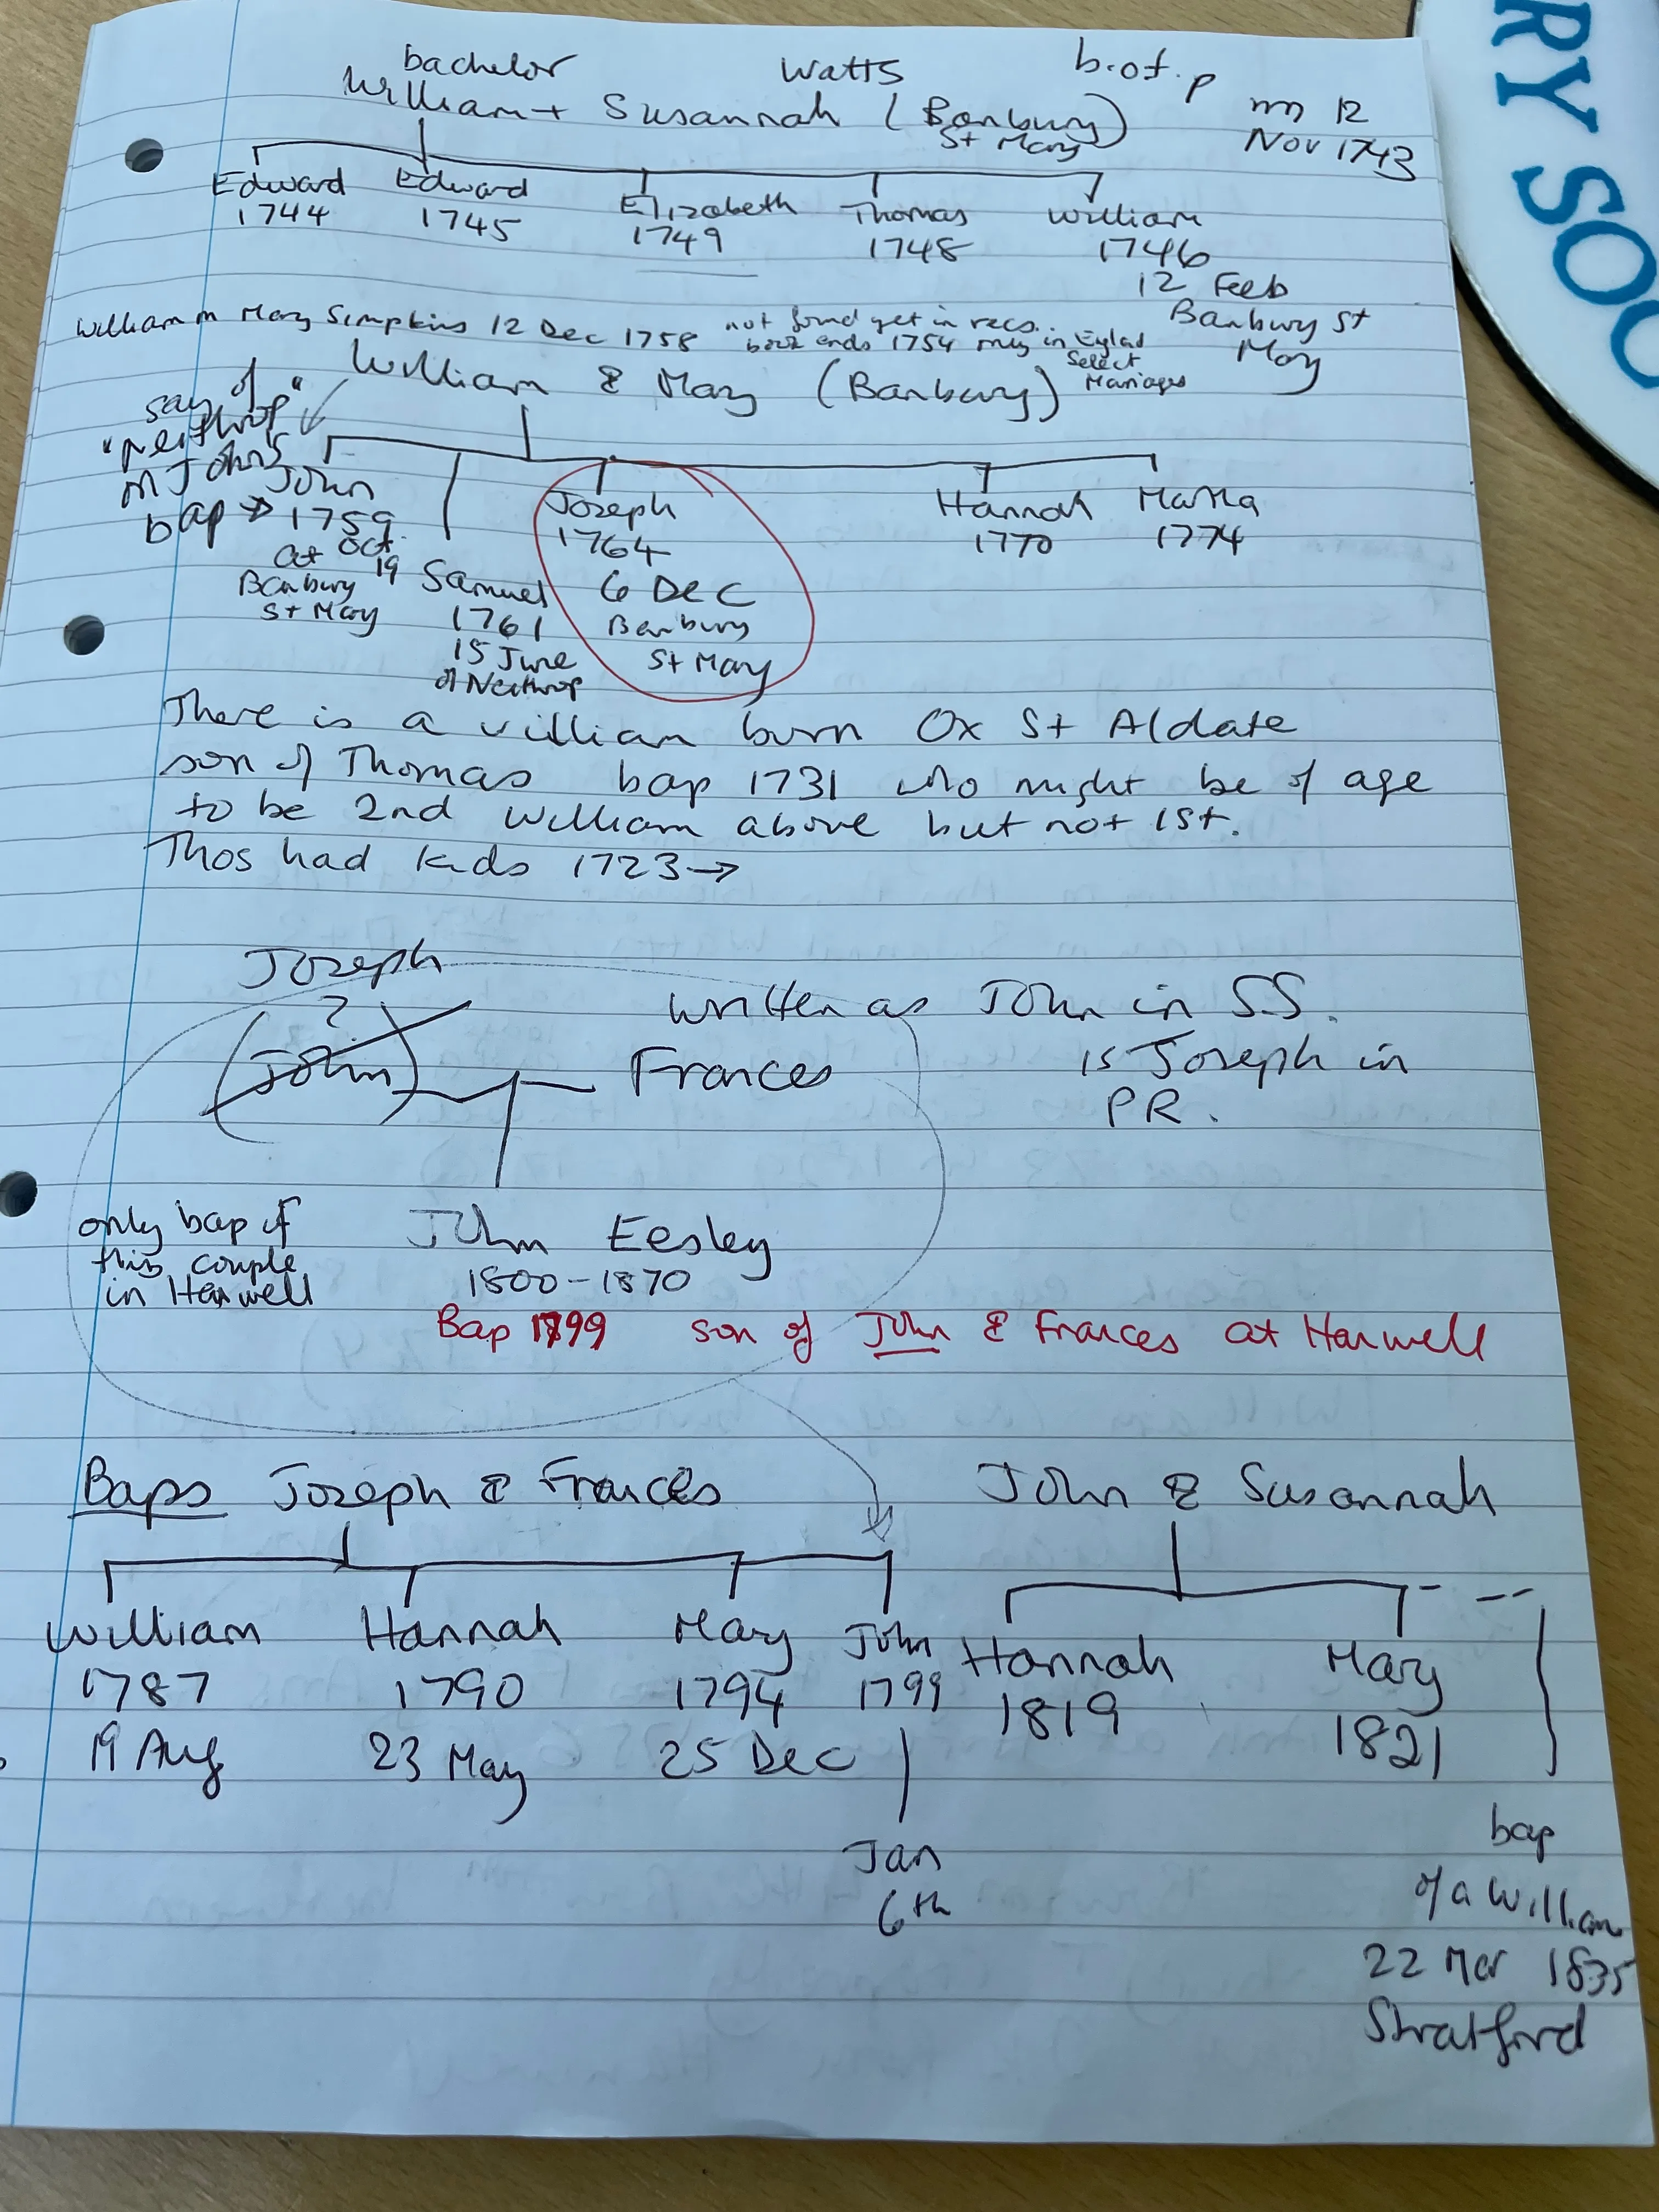 bachelor Watts b.of.p
William + Susannah (Banbury) m 12
St Mary Nov 1743
Edward Edward Elizabeth Thomas William
1744 1745 1749 1748 1746
12 Feb
Banbury St
Mary
William m Mary Simpkins 12 Dec 1758 not found yet in recs.
book ends 1754 only in England
Select
Marriages
William & Mary (Banbury)
say of
"neithrop"
m John's
bap → John
1759
Oct
19
at
Banbury
St Mary
Samuel
1761
15 June
of Neithrop
Joseph
1764
6 Dec
Banbury
St Mary
Hannah
1770
Martha
1774
There is a William born Ox St Aldate
son of Thomas bap 1731 who might be of age
to be 2nd William above but not 1st.
Thos had kids 1723→
Joseph
?
(John) Frances
written as John in S.S.
is Joseph in
PR.
only bap of
this couple
in Hanwell
John Eesley
1800-1870
Bap 1799 son of John & Frances at Hanwell
Baps Joseph & Frances John & Susannah
William Hannah Mary John Hannah Mary
1787 1790 1794 1799 1819 1821
19 Aug 23 May 25 Dec
Jan
6th
bap
of a William
22 Mar 1835
Stratford
RY SOC